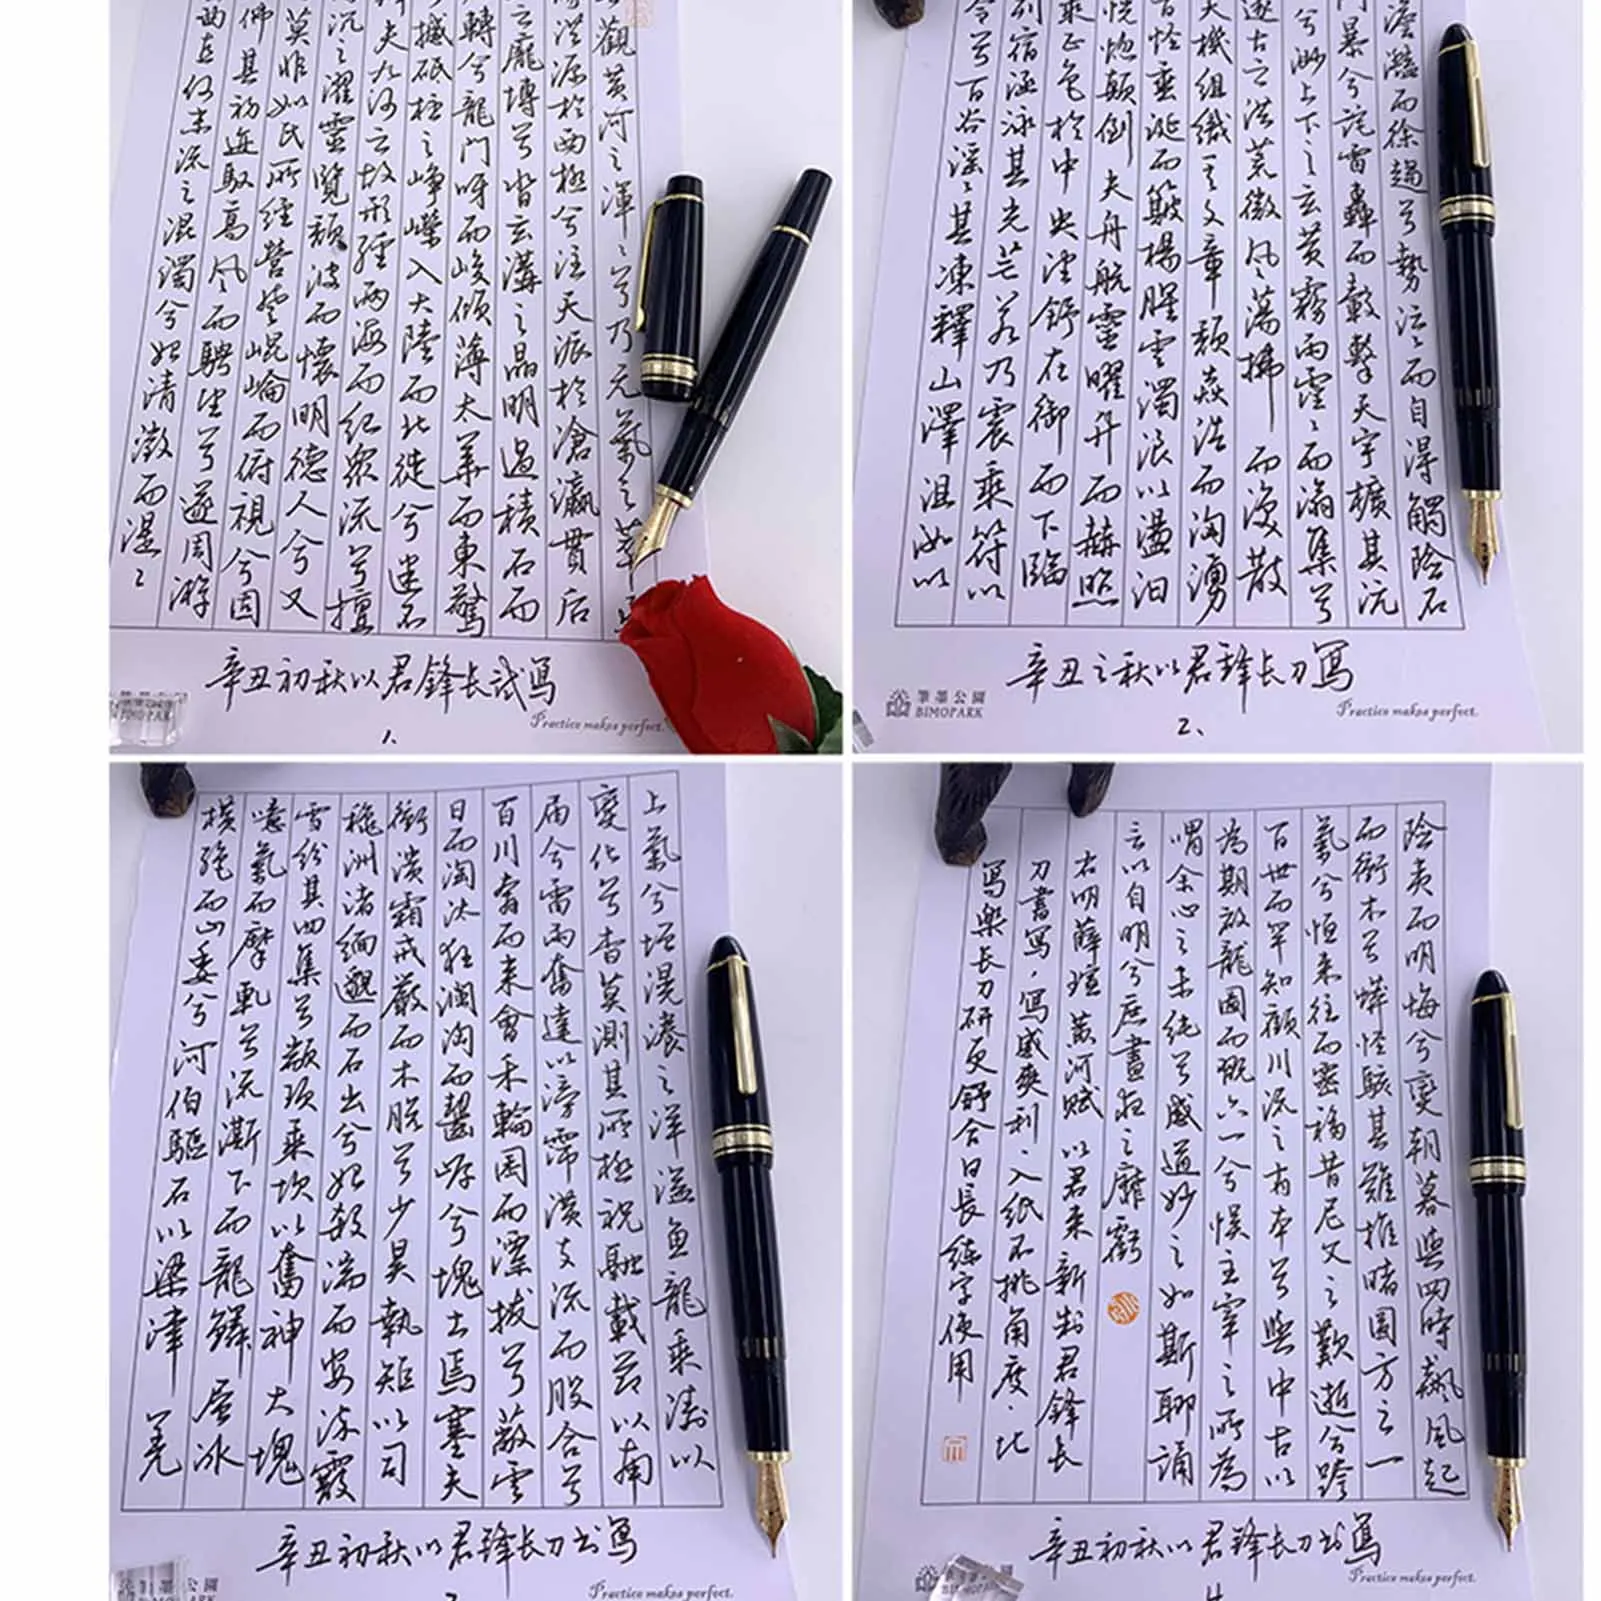 觀黃河之渾〻兮乃元氣之萃
洪源於西極兮注天派於滄瀛貫后
之龐博兮貲玄溝之晶明過積石而
轉兮龍門呀而峻傾薄太華而東驚
撼砥柱之崢嶸入大陸而北徙兮遂不
夫九河之故形經兩海而紀眾流兮擅
沉之濯靈覽頹波而懷明德人兮又
莫非如民所經營登崑崙而俯視兮固
佛其初進馭高風而騁望兮遂周游
何末流之混濁兮始清澂而湜〻
辛丑初秋以君鋒長試寫
1.
BIMOPARK
Practice makes perfect.
澹灩而徐趨兮勢汪〻而自得觸險石
門暴兮詫雷轟而轂擊天宇擴其沆
兮渺上下之玄黃霧雨霪〻而滃集兮
邃古之洪荒微風蕩拂而渙散
天機組織之文章頹焱浩而洶湧
百怪垂涎而簸揚腥雲濁浪以盪汨
恍惚顛倒夫舟航靈曜升而赫照
乘正色於中央望舒在御而下臨
列宿涵泳其光芒若乃震乘符以
令兮百谷滛〻其凍釋山澤沮洳以
辛丑之秋以君鋒長刀寫
筆墨公園
BIMOPARK
Practice makes perfect.
2、
上氣兮垣滉瀁之洋溢魚龍乘濤以
變化兮杳莫測其所極祝融載節以南
届兮雷雨奮達以滂霈潢支流而股合兮
百川奮而來會禾輪囷而漂拔兮蔽雲
日而淘汰狂瀾洶而嚙岸兮塊土焉塞夫
衝潰霜戒嚴而木脫兮少昊執矩以司
穐洲渚緬邈而石出兮始殺湍而安流霰
雪紛其四集兮顓頊乘坎以奮神大塊
噫氣而摩軋兮流澌下而龍鱗層冰
橫絶而山委兮河伯驅石以梁津羌
辛丑初秋以君鋒長刀書寫
Practice makes perfect.
險夷而明晦兮變朝暮與四時飆風起
而衝木兮蟒怪駭其難推睹圓方之一
氣兮恒來往而密移昔尼父之歎逝兮跨
百世而罕知顧川流之有本兮與中古以
為期啟龍圖而既六一兮悞主宰之所為
喟余心之未純兮感道妙之如斯聊誦
言以自明兮庶晝夜之靡虧
右明薛瑄黃河賦以君來新制君鋒長
刀書寫，寫感爽利，入紙不挑角度，比
寫樂長刀研更舒合日長練字使用
辛丑初秋以君鋒長刀書寫
BIMOPARK
Practice makes perfect.